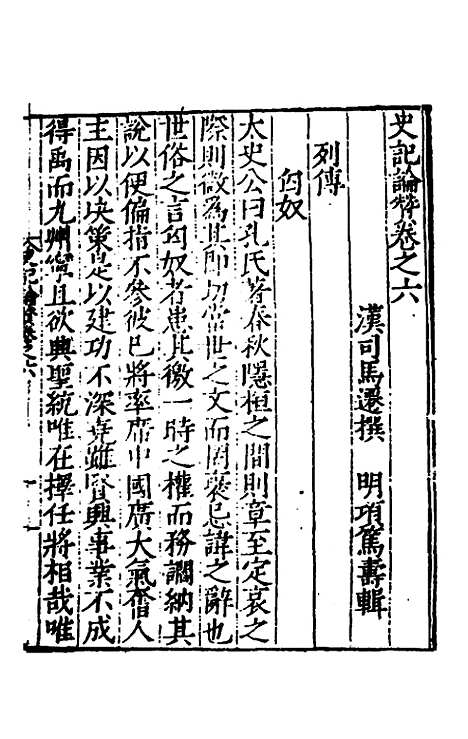 史記論贊卷之六
漢司馬遷撰　明項篤壽輯
列傳
匈奴
太史公曰孔氏著春秋隱桓之間則章至定哀之
際則微為其切當世之文而罔褒忌諱之辭也
世俗之言匈奴者患其徼一時之權而務讇納其
說以便偏指不參彼已將率席中國廣大氣奮人
主因以決策是以建功不深堯雖賢興事業不成
得禹而九州寧且欲興聖統唯在擇任將相哉唯
史記論贊卷之六